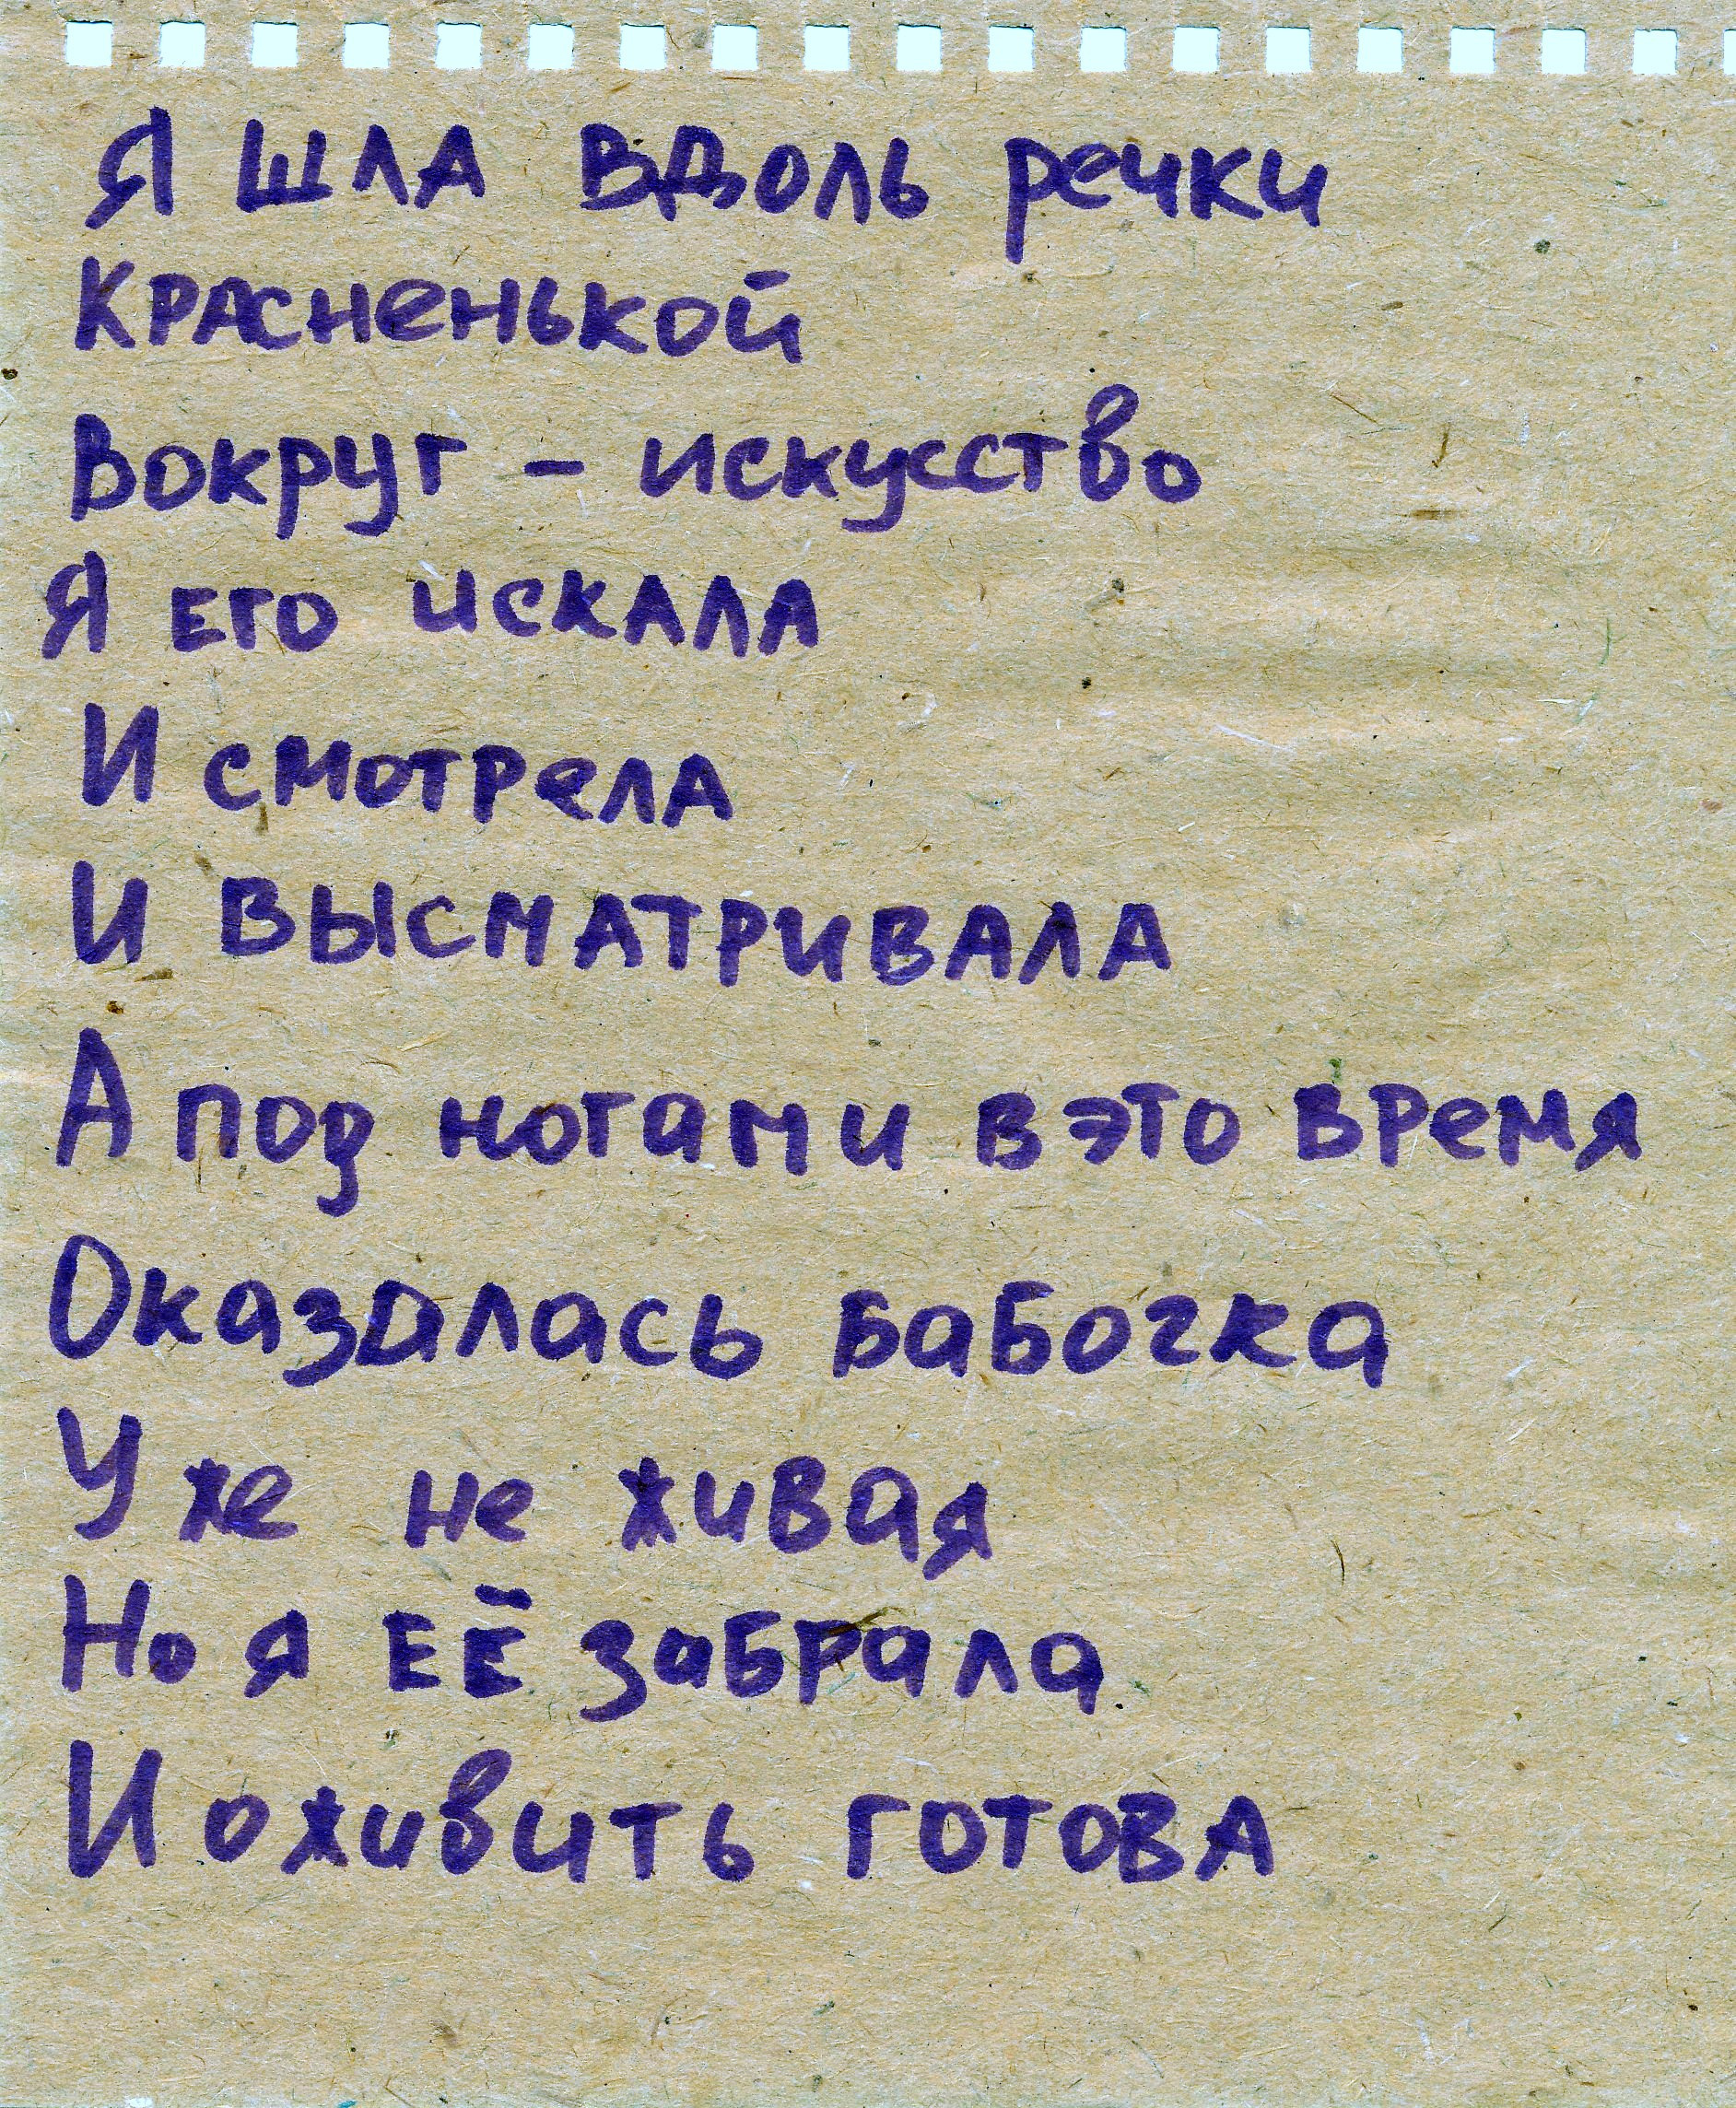 Я шла вдоль речки
Красненькой
Вокруг – искусство
Я его искала
И смотрела
И высматривала
А под ногами в это время
Оказалась бабочка
Уже не живая
Но я её забрала
И оживить готова